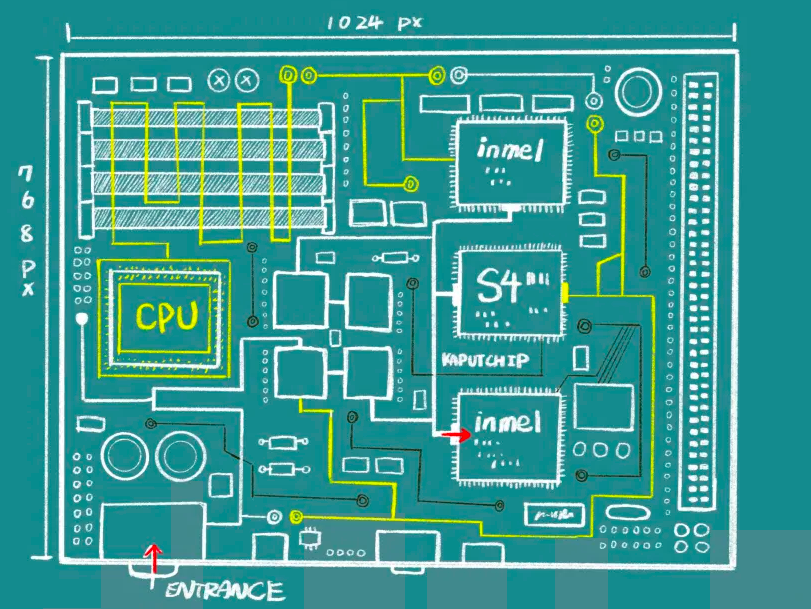 1024 px
768 px
inmel
S4
CPU
KAPUTCHIP
inmel
ENTRANCE